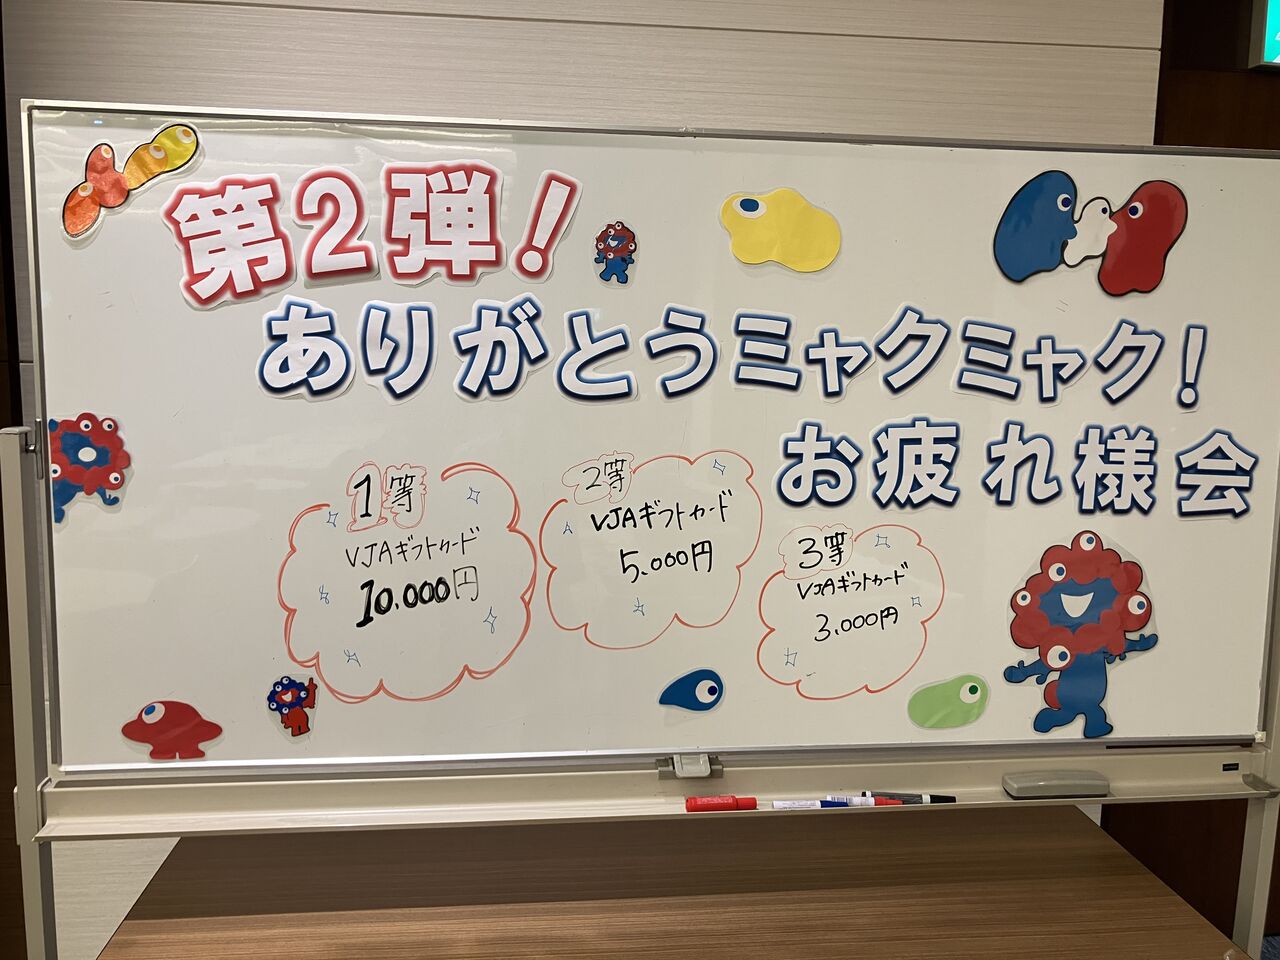 第2弾!
ありがとうミャクミャク!
お疲れ様会
1等
VJAギフトカード
10,000円
2等
VJAギフトカード
5,000円
3等
VJAギフトカード
3,000円